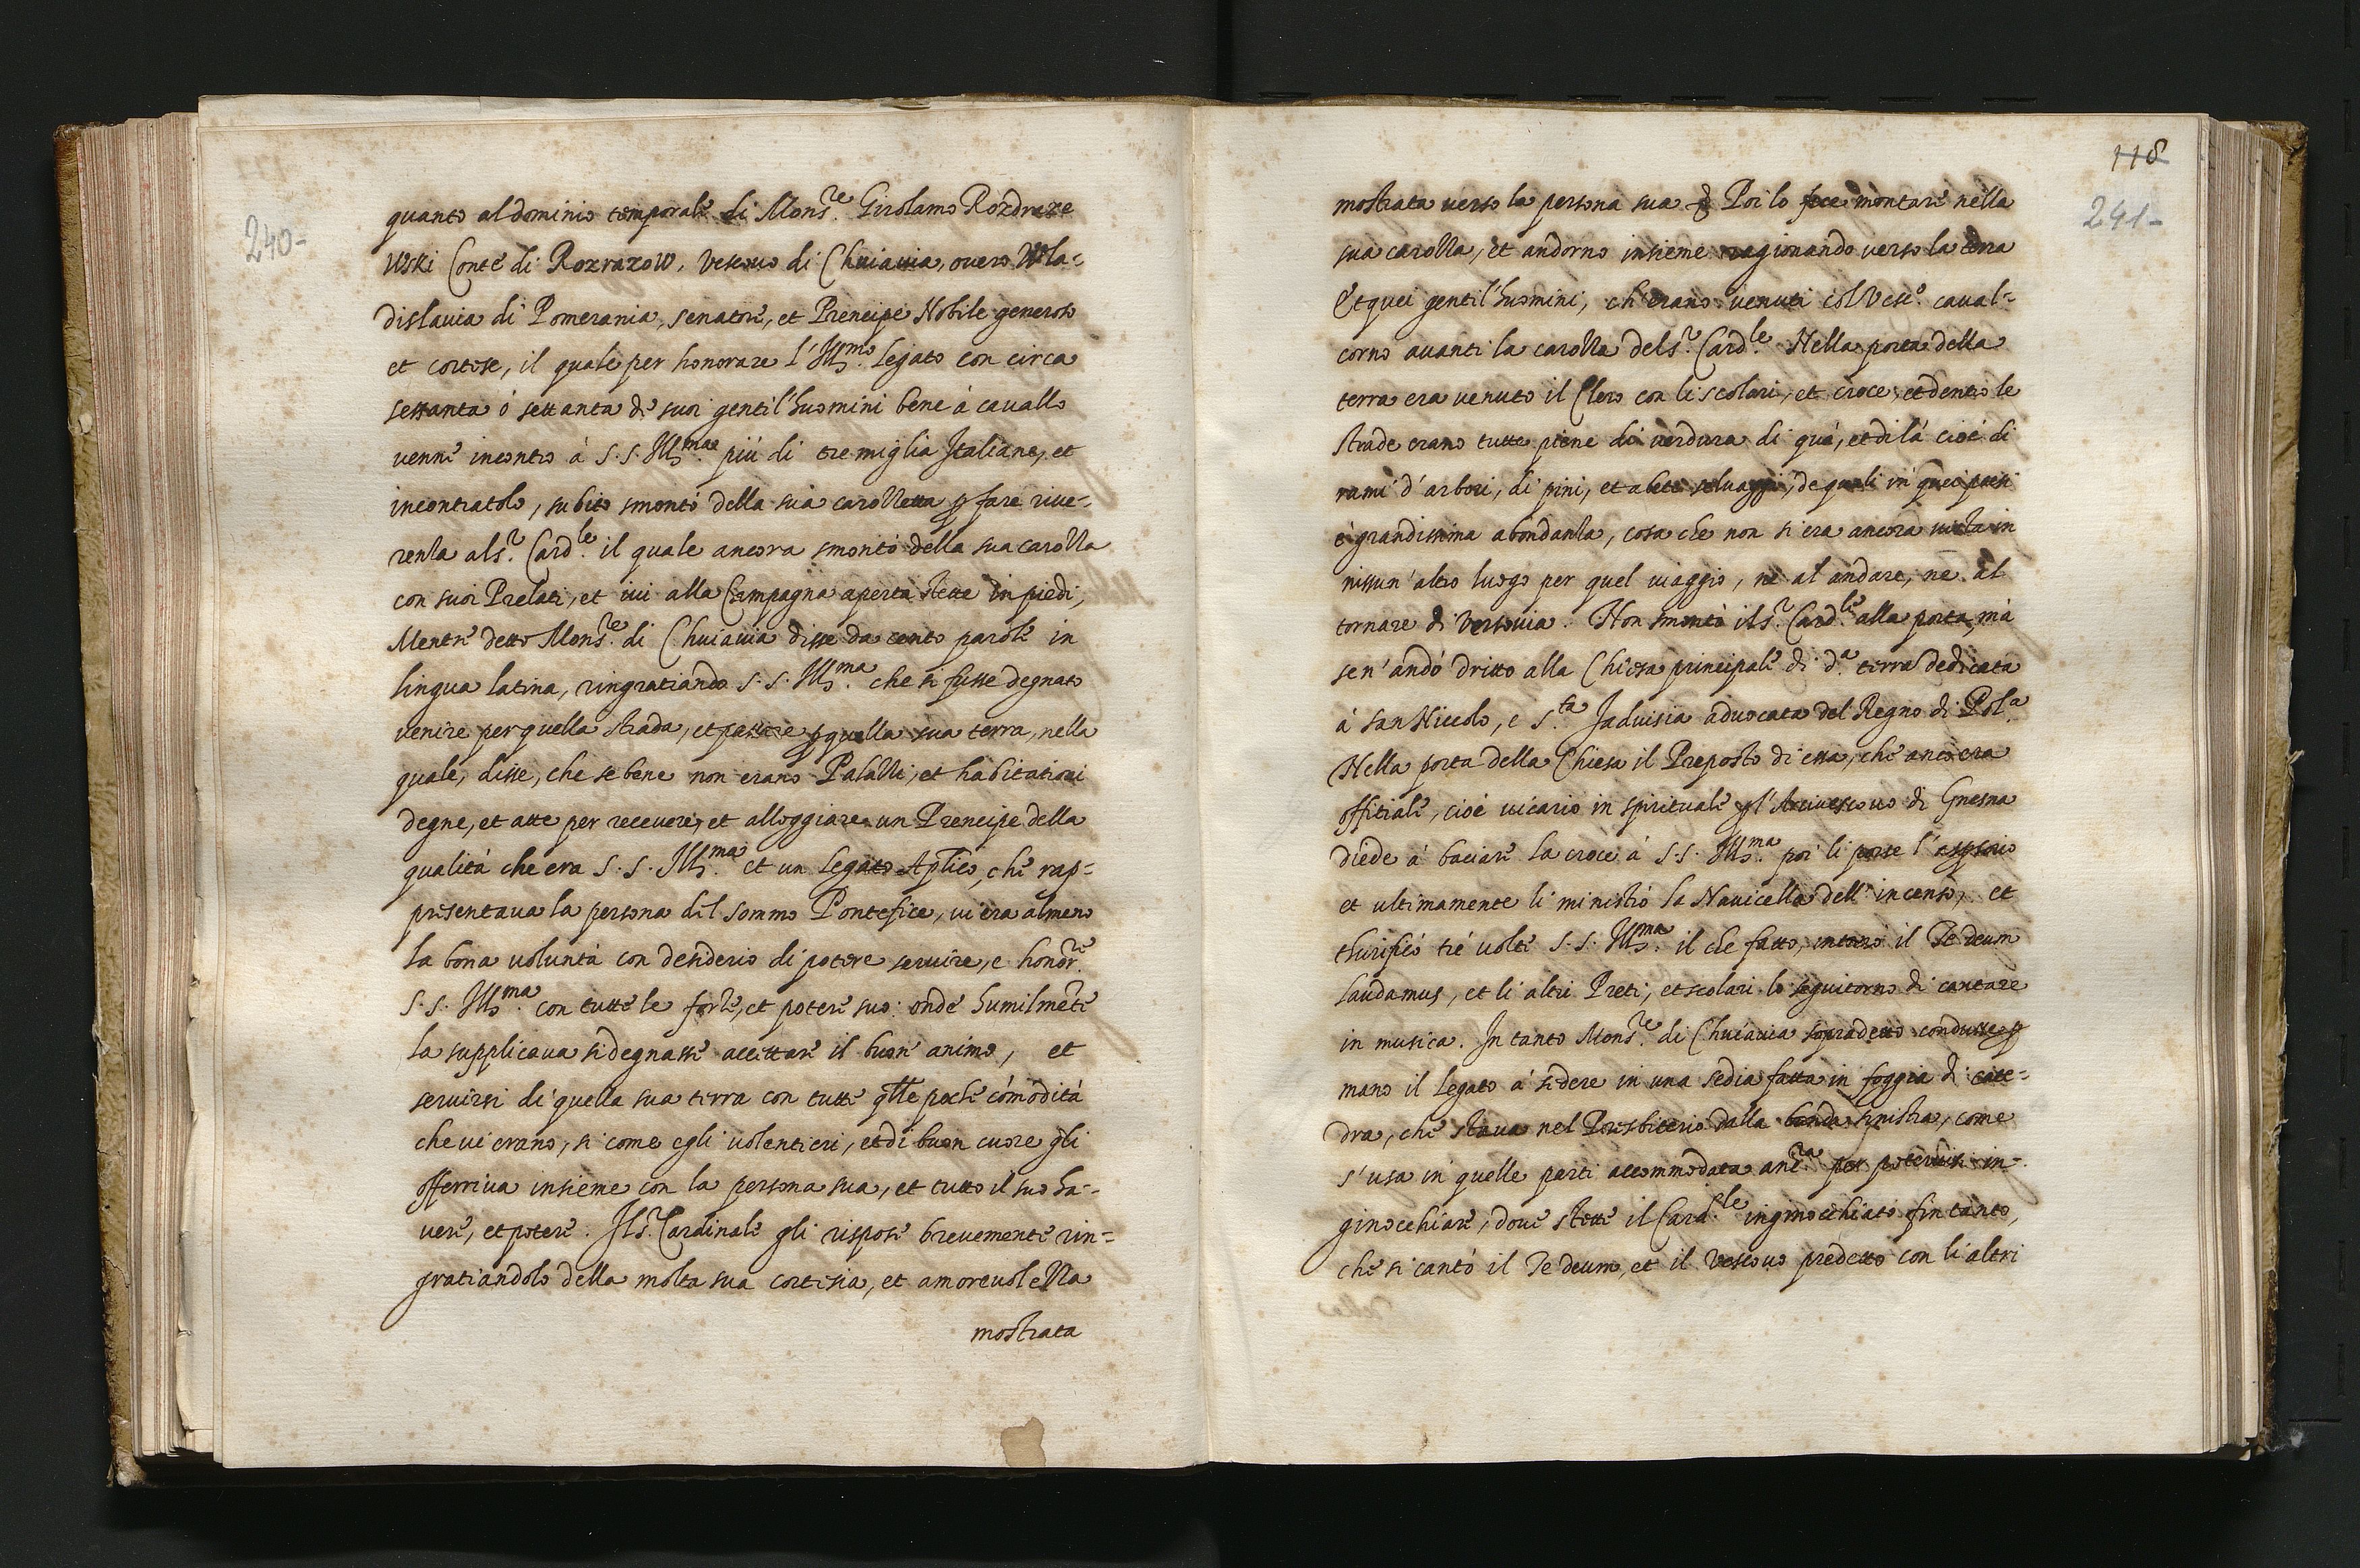 240-
quanto al dominio temporale di Mons.re Girolamo Rozdraze
wski Conte di Rozrazow, Vescouo di Chuiauia, ouero Wla=
dislauia di Pomerania, senatore, et Prencipe Nobile generoso
et cortese, il quale per honorare l'Ill.mo Legato con circa
sessanta ó settanta de suoi gentil'huomini bene à cavallo
venne incontro à S.S. Ill.ma piú di tre miglia Italiane, et
incontratolo, subito smontó della sua carozzetta p fare riue=
renza al S.r Card.le il quale ancora smontó della sua carozza
con suoi Prelati, et iui alla Campagna aperta stette in piedi,
Mentre detto Mons.re di Chuiauia disse da cento parole in
lingua latina, ringratiando S.S. Ill.ma che si fusse degnato
venire per quella strada, et passare p quella sua terra, nella
quale, disse, che se bene non erano Palazzi, et habitationi
degne, et atte per receuere, et alloggiare un Prencipe della
qualitá che era S.S. Ill.ma et un Legato Aplico, che rap=
presentaua la persona del sommo Pontefice, ui era almeno
la bona voluntà con desiderio di potere seruire, e honor.re
S.S. Ill.ma con tutte le forze, et potere suo: onde humilmēte
la supplicaua si degnasse accettare il buon' animo, et
seruirsi di quella sua terra con tutte qlle poche cómoditá
che ui erano, si come egli uolentieri, et di buon cuore gli
offerriua insieme con la persona sua, et tutto il suo ha=
uere, et potere. Il S.r Cardinale gli rispose breuemente rin=
gratiandolo della molta sua cortesia, et amoreuolezza
mostrata
118
241-
mostrata verso la persona sua Poi lo fece montare nella
sua carozza, et andorno insieme ragionando verso la terra
Et quei gentil'huomini, ch'erano venuti col Vesc.o caual=
corno auanti la carozza del S.r Card.le Nella porta della
terra era venuto il Clero con li scolari, et croce, et dentro le
strade erano tutte piene di verdura di quá, et di lá cioé di
rami d'arbori, di pini, et abeti seluaggi, de quali in quei paesi
é grandissima abondanza, cosa che non si era ancora uista in
nissun'altro luogo per quel uiaggio, né al andare, né al
tornare di Versouia. Non smontò il S.r Card.le alla porta, mà
sen'andó dritto alla Chiesa principale di d.a terra dedicata
á san Niccolo, e S.ta Jaduisia aduocata del Regno di Pol.a
Nella porta della Chiesa il Preposto di essa, che anco era
offitiale, cioé uicario in spirituale p l'Arciuescouo di Gnesna
diede a' baciare la croce á S.S. Ill.ma poi li porse l'aspsorio
et ultimamente li ministró la Nauicella dell'incenso, et
thurificó tré uolte S.S. Ill.ma il che fatto, intonó il Te deum
laudamus, et li altri Preti, et scolari lo seguitorno di cantare
in musica. In tanto Mons.re di Chuiauia sopradetto condusse p
mano il Legato a' sedere in una sedia fatta in foggia di cate=
dra, che staua nel Presbiterio dalla banda sinistra, come
s'usa in quelle parti accommodata anc.ra per poteruisi in=
ginocchiare, doue stette il Card.le inginocchiato fin tanto,
che si cantó il Te deum, et il Vescouo predetto con li altri